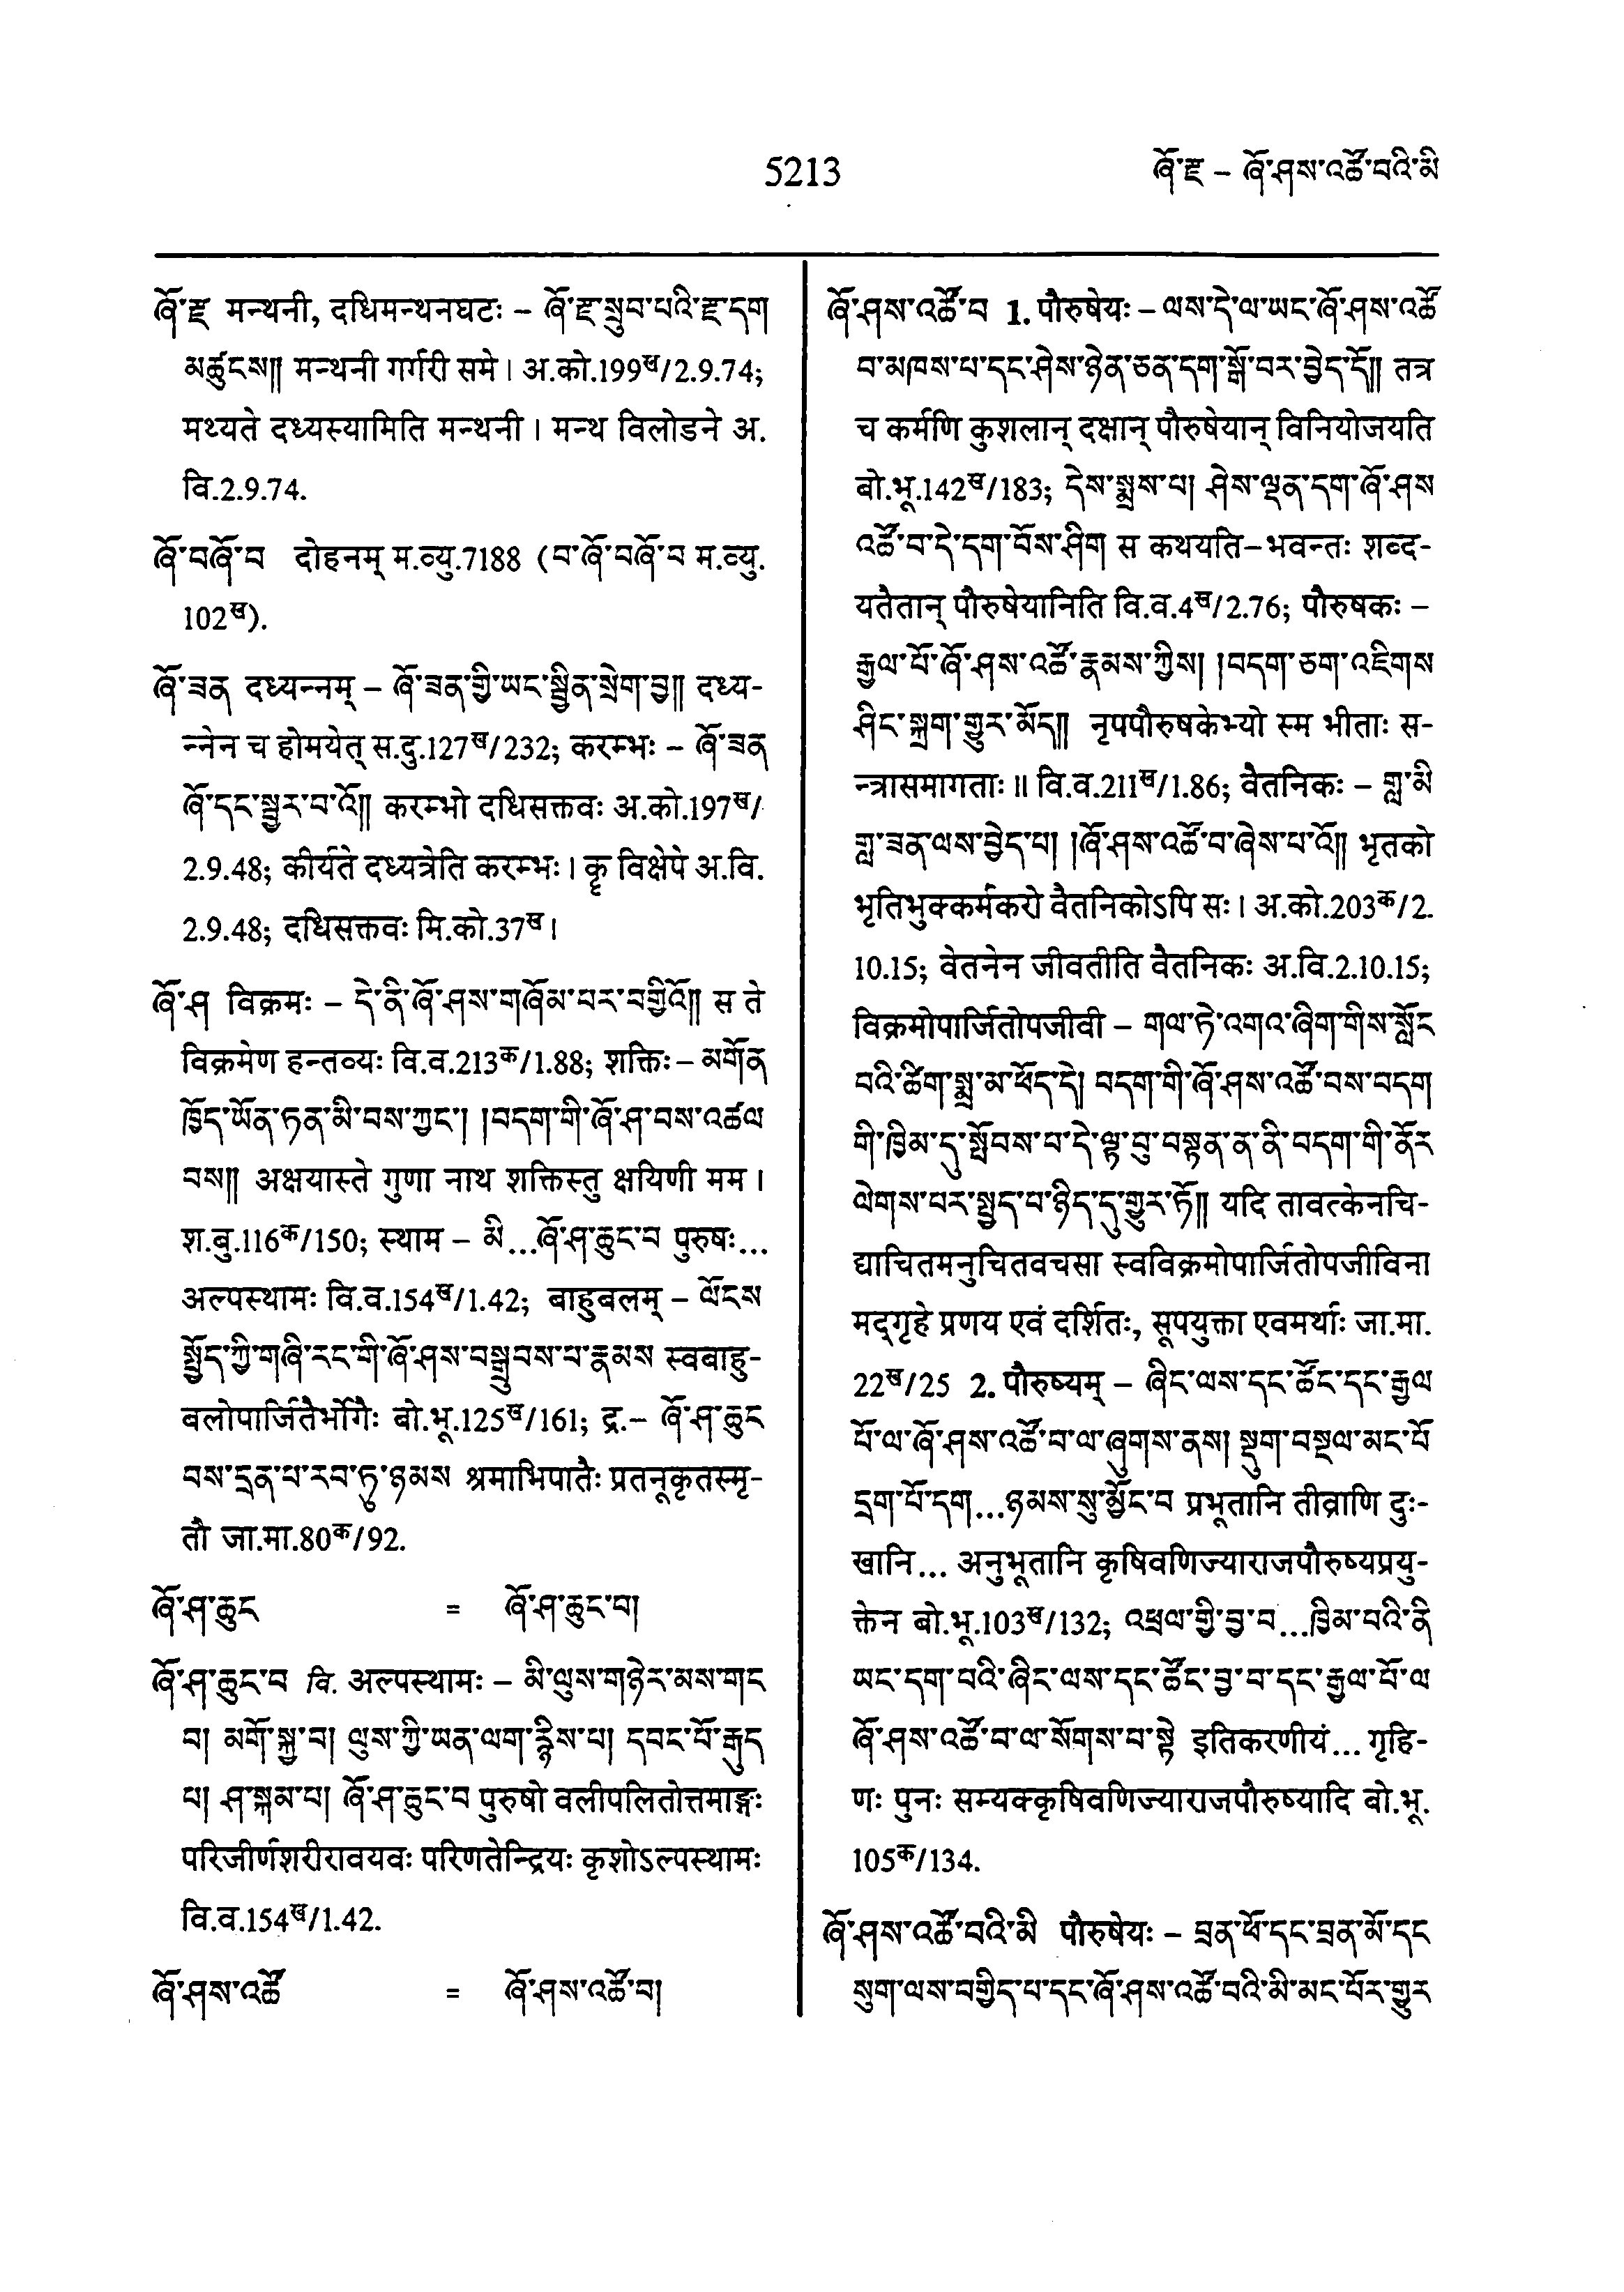 5213
ཞོ་རྫ – ཞོ་ཤས་འཚོ་བའི་མི
ཞོ་རྫ मन्थनी, दधिमन्थनघटः – ཞོ་རྫ་སྲུབ་པའི་རྫ་དག
མཚུངས།། मन्थनी गर्गरी समे । अ.को.199ख/2.9.74;
मथ्यते दध्यस्यामिति मन्थनी । मन्थ विलोडने अ.
वि.2.9.74.
ཞོ་བཞོ་བ दोहनम् म.व्यु.7188 (བ་ཞོ་བཞོ་བ म.व्यु.
102ख).
ཞོ་ཟན दध्यन्नम् – ཞོ་ཟན་གྱི་ཡང་སྦྱིན་སྲེག་བྱ།། दध्य-
न्नेन च होमयेत् स.दु.127ख/232; करम्भः – ཞོ་ཟན
ཞོ་དང་སྦྱར་བ་འོ།། करम्भो दधिसक्तवः अ.को.197ख/
2.9.48; कीर्यते दध्यत्रेति करम्भः । कॄ विक्षेपे अ.वि.
2.9.48; दधिसक्तवः मि.को.37ख ।
ཞོ་ཤ विक्रमः – དེ་ནི་ཞོ་ཤས་གཞོམ་པར་བགྱིའོ།། स ते
विक्रमेण हन्तव्यः वि.व.213क/1.88; शक्तिः – མགོན
ཁྱོད་ཡོན་ཏན་མི་བས་ཀྱང་། །བདག་གི་ཞོ་ཤ་བས་འཚལ
བས།། अक्षयास्ते गुणा नाथ शक्तिस्तु क्षयिणी मम ।
श.बु.116क/150; स्थाम – མི...ཞོ་ཤ་ཆུང་བ पुरुषः...
अल्पस्थामः वि.व.154ख/1.42; बाहुबलम् – ལོངས
སྤྱོད་ཀྱི་གཞི་རང་གི་ཞོ་ཤས་བསྒྲུབས་པ་རྣམས स्वबाहु-
बलोपार्जितैर्भोगैः बो.भू.125ख/161; द्र.– ཞོ་ཤ་ཆུང
བས་དྲན་པ་རབ་ཏུ་ཉམས श्रमाभिपातैः प्रतनूकृतस्मृ-
तौ जा.मा.80क/92.
ཞོ་ཤ་ཆུང = ཞོ་ཤ་ཆུང་བ།
ཞོ་ཤ་ཆུང་བ वि. अल्पस्थामः – མི་ལུས་གཉེར་མས་གང
བ། མགོ་སྐྱ་བ། ལུས་ཀྱི་ཡན་ལག་རྙིས་པ། དབང་པོ་རྒུད
པ། ཤ་སྐམ་པ། ཞོ་ཤ་ཆུང་བ पुरुषो वलीपलितोत्तमाङ्गः
परिजीर्णशरीरावयवः परिणतेन्द्रियः कृशोऽल्पस्थामः
वि.व.154ख/1.42.
ཞོ་ཤས་འཚོ = ཞོ་ཤས་འཚོ་བ།
ཞོ་ཤས་འཚོ་བ 1. पौरुषेयः – ལས་དེ་ལ་ཡང་ཞོ་ཤས་འཚོ
བ་མཁས་པ་དང་ཤེས་ཉེན་ཅན་དག་སྒོ་བར་བྱེད་དོ།། तत्र
च कर्मणि कुशलान् दक्षान् पौरुषेयान् विनियोजयति
बो.भू.142ख/183; དེས་སྨྲས་པ། ཤེས་ལྡན་དག་ཞོ་ཤས
འཚོ་བ་དེ་དག་བོས་ཤིག स कथयति–भवन्तः शब्द-
यतैतान् पौरुषेयानिति वि.व.4ख/2.76; पौरुषकः –
རྒྱལ་པོ་ཞོ་ཤས་འཚོ་རྣམས་ཀྱིས། །བདག་ཅག་འཇིགས
ཤིང་སྐྲག་གྱུར་མོད།། नृपपौरुषकेभ्यो स्म भीताः स-
न्त्रासमागताः ॥ वि.व.211ख/1.86; वैतनिकः – གླ་མི
གླ་ཟན་ལས་བྱེད་པ། །ཞོ་ཤས་འཚོ་བ་ཞེས་པ་འོ།། भृतको
भृतिभुक्कर्मकरो वैतनिकोऽपि सः । अ.को.203क/2.
10.15; वेतनेन जीवतीति वैतनिकः अ.वि.2.10.15;
विक्रमोपार्जितोपजीवी – གལ་ཏེ་འགའ་ཞིག་གིས་སློང
བའི་ཚིག་སྨྲ་མ་ཕོད་དེ། བདག་གི་ཞོ་ཤས་འཚོ་བས་བདག
གི་ཁྱིམ་དུ་སྤོབས་པ་དེ་ལྟ་བུ་བསྟན་ན་ནི་བདག་གི་ནོར
ལེགས་པར་སྤྱད་པ་ཉིད་དུ་གྱུར་ཏོ།། यदि तावत्केनचि-
द्याचितमनुचितवचसा स्वविक्रमोपार्जितोपजीविना
मद्गृहे प्रणय एवं दर्शितः, सूपयुक्ता एवमर्थाः जा.मा.
22ख/25 2. पौरुष्यम् – ཞིང་ལས་དང་ཚོང་དང་རྒྱལ
པོ་ལ་ཞོ་ཤས་འཚོ་བ་ལ་ཞུགས་ནས། སྡུག་བསྔལ་མང་པོ
དྲག་པོ་དག...ཉམས་སུ་མྱོང་བ प्रभूतानि तीव्राणि दुः-
खानि... अनुभूतानि कृषिवणिज्याराजपौरुष्यप्रयु-
क्तेन बो.भू.103ख/132; འཕྲལ་གྱི་བྱ་བ...ཁྱིམ་པའི་ནི
ཡང་དག་པའི་ཞིང་ལས་དང་ཚོང་བྱ་བ་དང་རྒྱལ་པོ་ལ
ཞོ་ཤས་འཚོ་བ་ལ་སོགས་པ་སྟེ इतिकरणीयं... गृहि-
णः पुनः सम्यक्कृषिवणिज्याराजपौरुष्यादि बो.भू.
105क/134.
ཞོ་ཤས་འཚོ་བའི་མི पौरुषेयः – བྲན་ཕོ་དང་བྲན་མོ་དང
ལུག་ལས་བགྱིད་པ་དང་ཞོ་ཤས་འཚོ་བའི་མི་མང་པོར་གྱུར